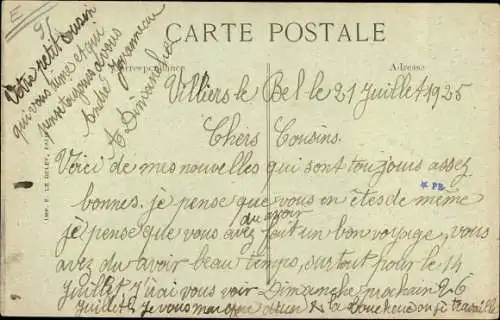 E
CARTE POSTALE
Correspondance
Adresse
Votre petit cousin
qui vous aime et qui
pense toujours a vous
André
A Dimanche
Villiers le Bel le 21 Juillet 1925
Chers Cousins.
Voici de mes nouvelles qui sont toujours assez
bonnes. je pense que vous en êtes de même
je pense que vous avez du avoir fait un bon voyage, vous
avez du avoir beau temps, surtout pour le 14
Juillet J'irai vous voir Dimanche prochain 26
juillet je vous la Boucherie on je travaille
* PB
IMP. E. LE DELEY, PARIS